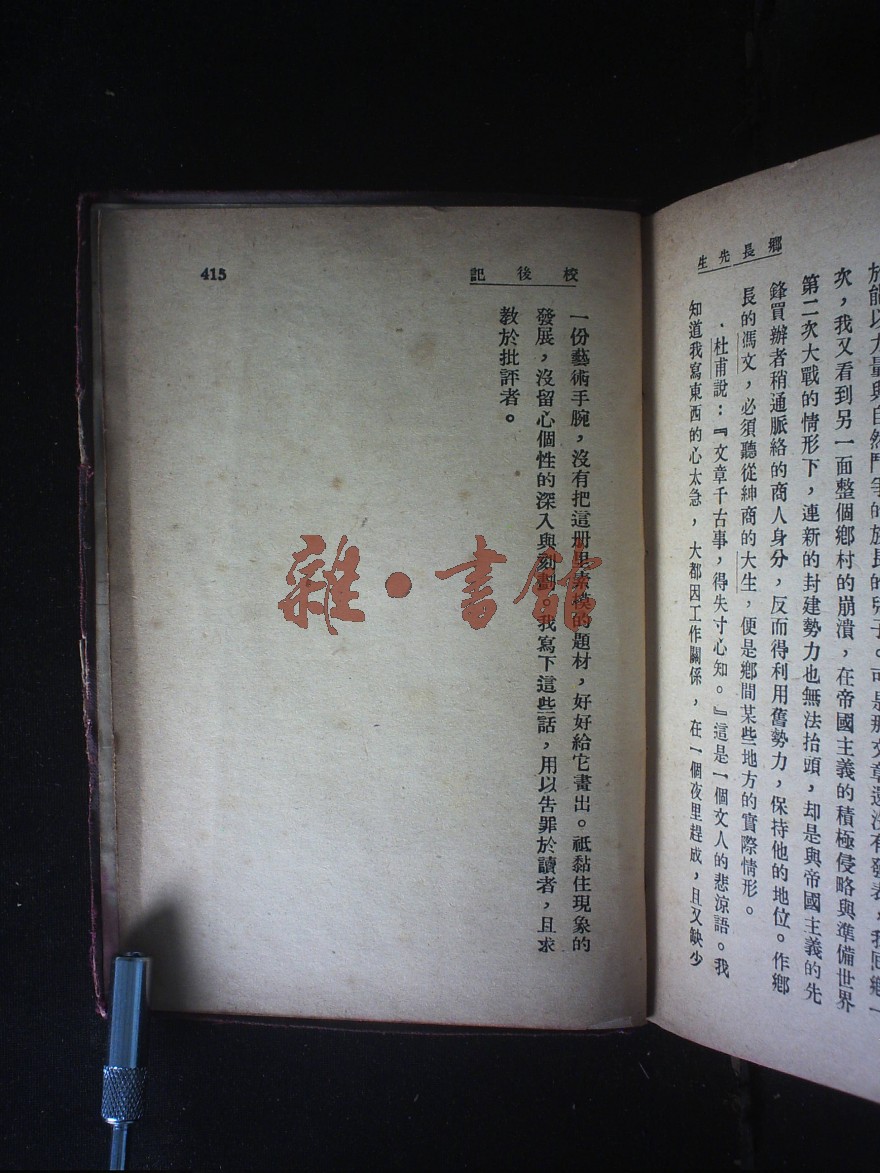 鄉長先生
於能以力量與自然鬥爭的族長的兒子。可是那文章還沒有發表，我回鄉一
次，我又看到另一面整個鄉村的崩潰，在帝國主義的積極侵略與準備世界
第二次大戰的情形下，連新的封建勢力也無法抬頭，却是與帝國主義的先
鋒買辦者稍通脈絡的商人身分，反而得利用舊勢力，保持他的地位。作鄉
長的馮文，必須聽從紳商的大生，便是鄉間某些地方的實際情形。
杜甫說：『文章千古事，得失寸心知。』這是一個文人的悲涼語。我
知道我寫東西的心太急，大都因工作關係，在一個夜里趕成，且又缺少
校後記
415
一份藝術手腕，沒有把這册里素樸的題材，好好給它畫出。祗黏住現象的
發展，沒留心個性的深入與刻劃。我寫下這些話，用以告罪於讀者，且求
教於批評者。
雜·書館